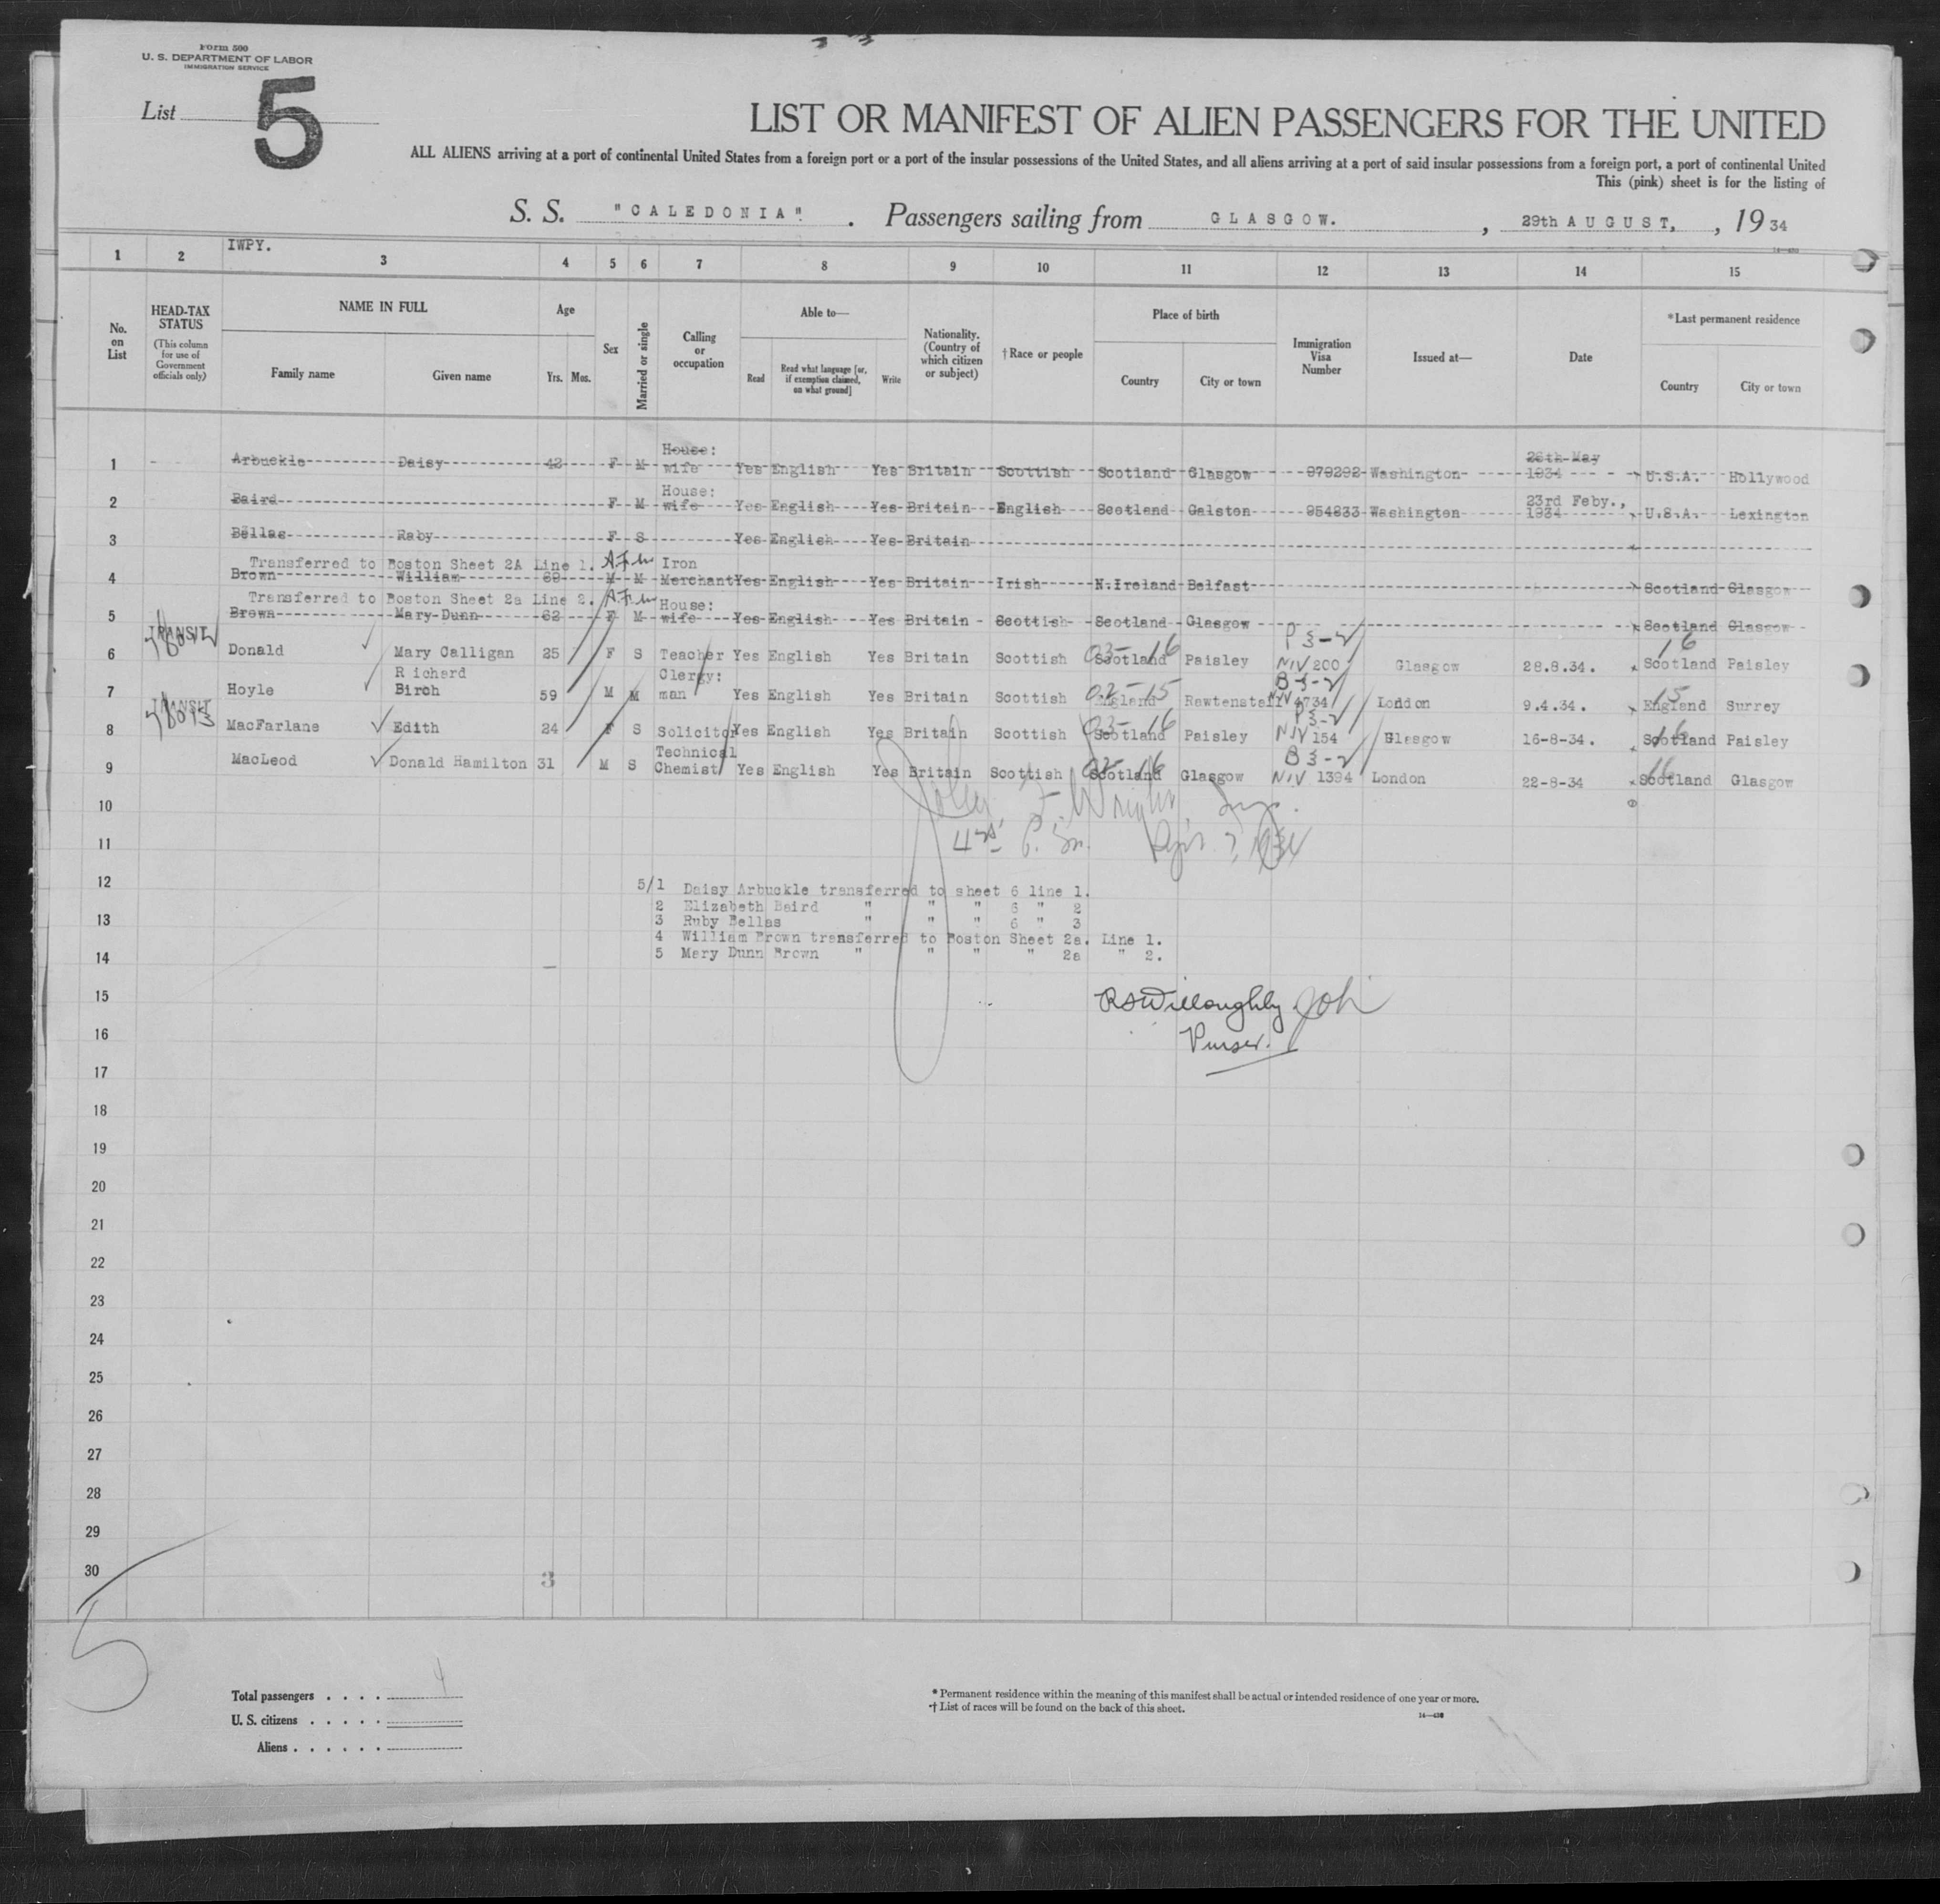 Form 500
U. S. DEPARTMENT OF LABOR
IMMIGRATION SERVICE
List 5
LIST OR MANIFEST OF ALIEN PASSENGERS FOR THE UNITED
ALL ALIENS arriving at a port of continental United States from a foreign port or a port of the insular possessions of the United States, and all aliens arriving at a port of said insular possessions from a foreign port, a port of continental United
This (pink) sheet is for the listing of
S. S. "CALEDONIA". Passengers sailing from GLASGOW. , 29th AUGUST, , 19 34
IWPY.
1 2 3 4 5 6 7 8 9 10 11 12 13 14 15
No. on List
HEAD-TAX STATUS (This column for use of Government officials only)
NAME IN FULL
Family name Given name
Age Yrs. Mos.
Sex
Married or single
Calling or occupation
Able to—
Read Read what language [or, if exemption claimed, on what ground] Write
Nationality. (Country of which citizen or subject)
†Race or people
Place of birth
Country City or town
Immigration Visa Number
Issued at—
Date
*Last permanent residence
Country City or town
1 Arbuckle Daisy 42 F M House: wife Yes English Yes Britain Scottish Scotland Glasgow 979292 Washington 26th May 1934 U.S.A. Hollywood
2 Baird F M House: wife Yes English Yes Britain English Scotland Galston 954833 Washington 23rd Feby., 1934 U.S.A. Lexington
3 Bellas Ruby F S Yes English Yes Britain
Transferred to Boston Sheet 2A Line 1.
4 Brown William 69 M M Iron Merchant Yes English Yes Britain Irish N.Ireland Belfast Scotland Glasgow
Transferred to Boston Sheet 2a Line 2.
5 Brown Mary Dunn 62 F M House: wife Yes English Yes Britain Scottish Scotland Glasgow Scotland Glasgow
TRANSIT
6 Donald Mary Calligan 25 F S Teacher Yes English Yes Britain Scottish 03-16 Scotland Paisley P3-2 NIV 200 Glasgow 28.8.34. 16 Scotland Paisley
7 Hoyle Richard Birch 59 M M Clergy: man Yes English Yes Britain Scottish 02-15 England Rawtenstall B3-2 NIV 4734 London 9.4.34. 15 England Surrey
TRANSIT
8 MacFarlane Edith 24 F S Solicitor Yes English Yes Britain Scottish 03-16 Scotland Paisley P3-2 NIV 154 Glasgow 16-8-34. 16 Scotland Paisley
9 MacLeod Donald Hamilton 31 M S Technical Chemist Yes English Yes Britain Scottish 02-16 Scotland Glasgow B3-2 NIV 1394 London 22-8-34 16 Scotland Glasgow
10
11
12
5/1 Daisy Arbuckle transferred to sheet 6 line 1.
2 Elizabeth Baird " " " 6 " 2
13
3 Ruby Bellas " " " 6 " 3
4 William Brown transferred to Boston Sheet 2a. Line 1.
14
5 Mary Dunn Brown " " " " 2a " 2.
15
RS Willoughby
16
Purser.
17
18
19
20
21
22
23
24
25
26
27
28
29
30
3
5
Total passengers . . . . 4
U. S. citizens . . . . .
Aliens . . . . . .
* Permanent residence within the meaning of this manifest shall be actual or intended residence of one year or more.
† List of races will be found on the back of this sheet.
14—430